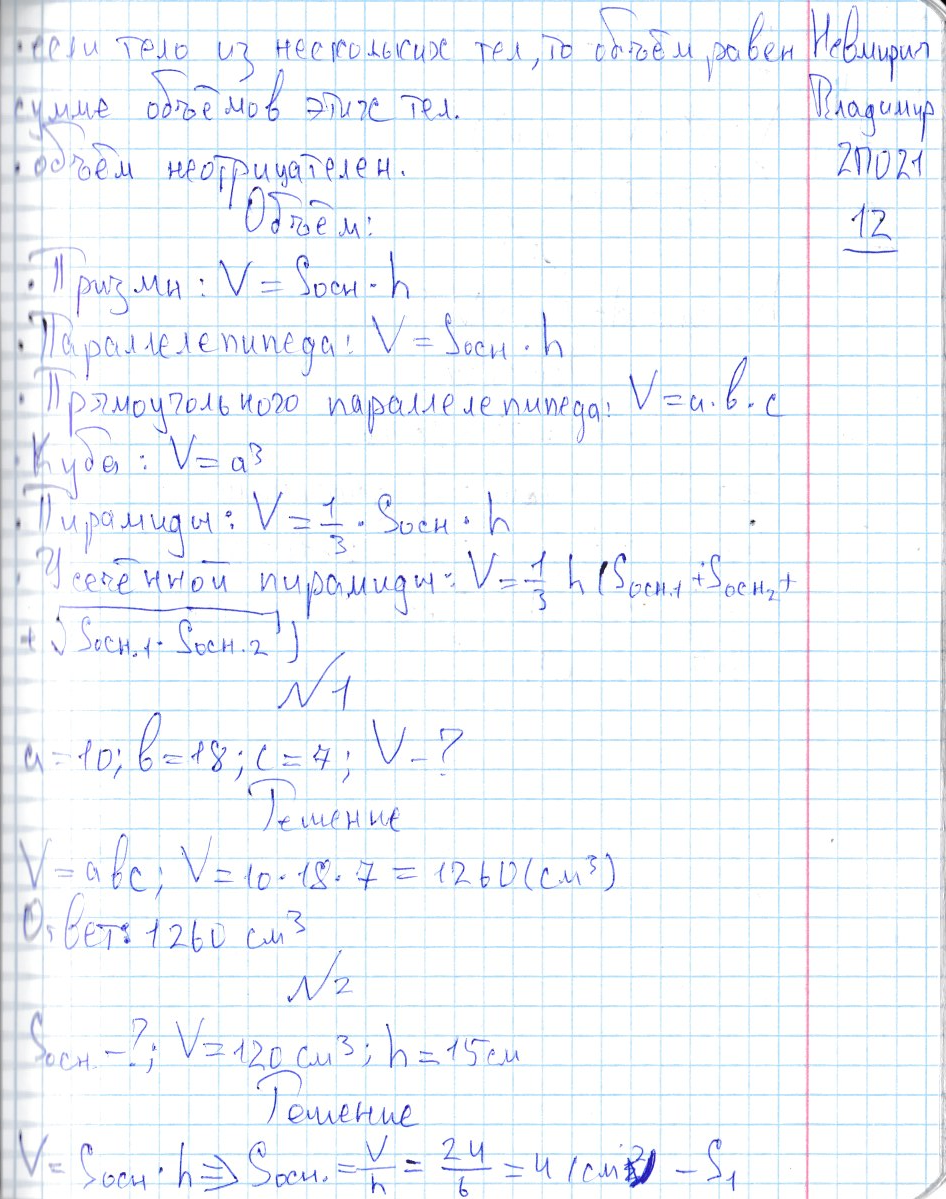 ·если тело из нескольких тел, то объём равен
сумме объёмов этих тел.
·объём неотрицателен.
Объём:
·Призмы: V = Sосн · h
·Параллелепипеда: V = Sосн · h
·Прямоугольного параллелепипеда: V = a · b · c
·Куба: V = a³
·Пирамиды: V = 1/3 · Sосн · h
·Усечённой пирамиды: V = 1/3 h (Sосн.1 + Sосн.2 +
+ √(Sосн.1 · Sосн.2))
N1
a = 10; b = 18; c = 7; V - ?
Решение
V = abc; V = 10 · 18 · 7 = 1260 (см³)
Ответ: 1260 см³
N2
Sосн. - ?; V = 120 см³; h = 15 см
Решение
V = Sосн · h ⇒ Sосн. = V/h = 24/6 = 4 (см - S₁
Невмирич
Владимир
2ПО21
12